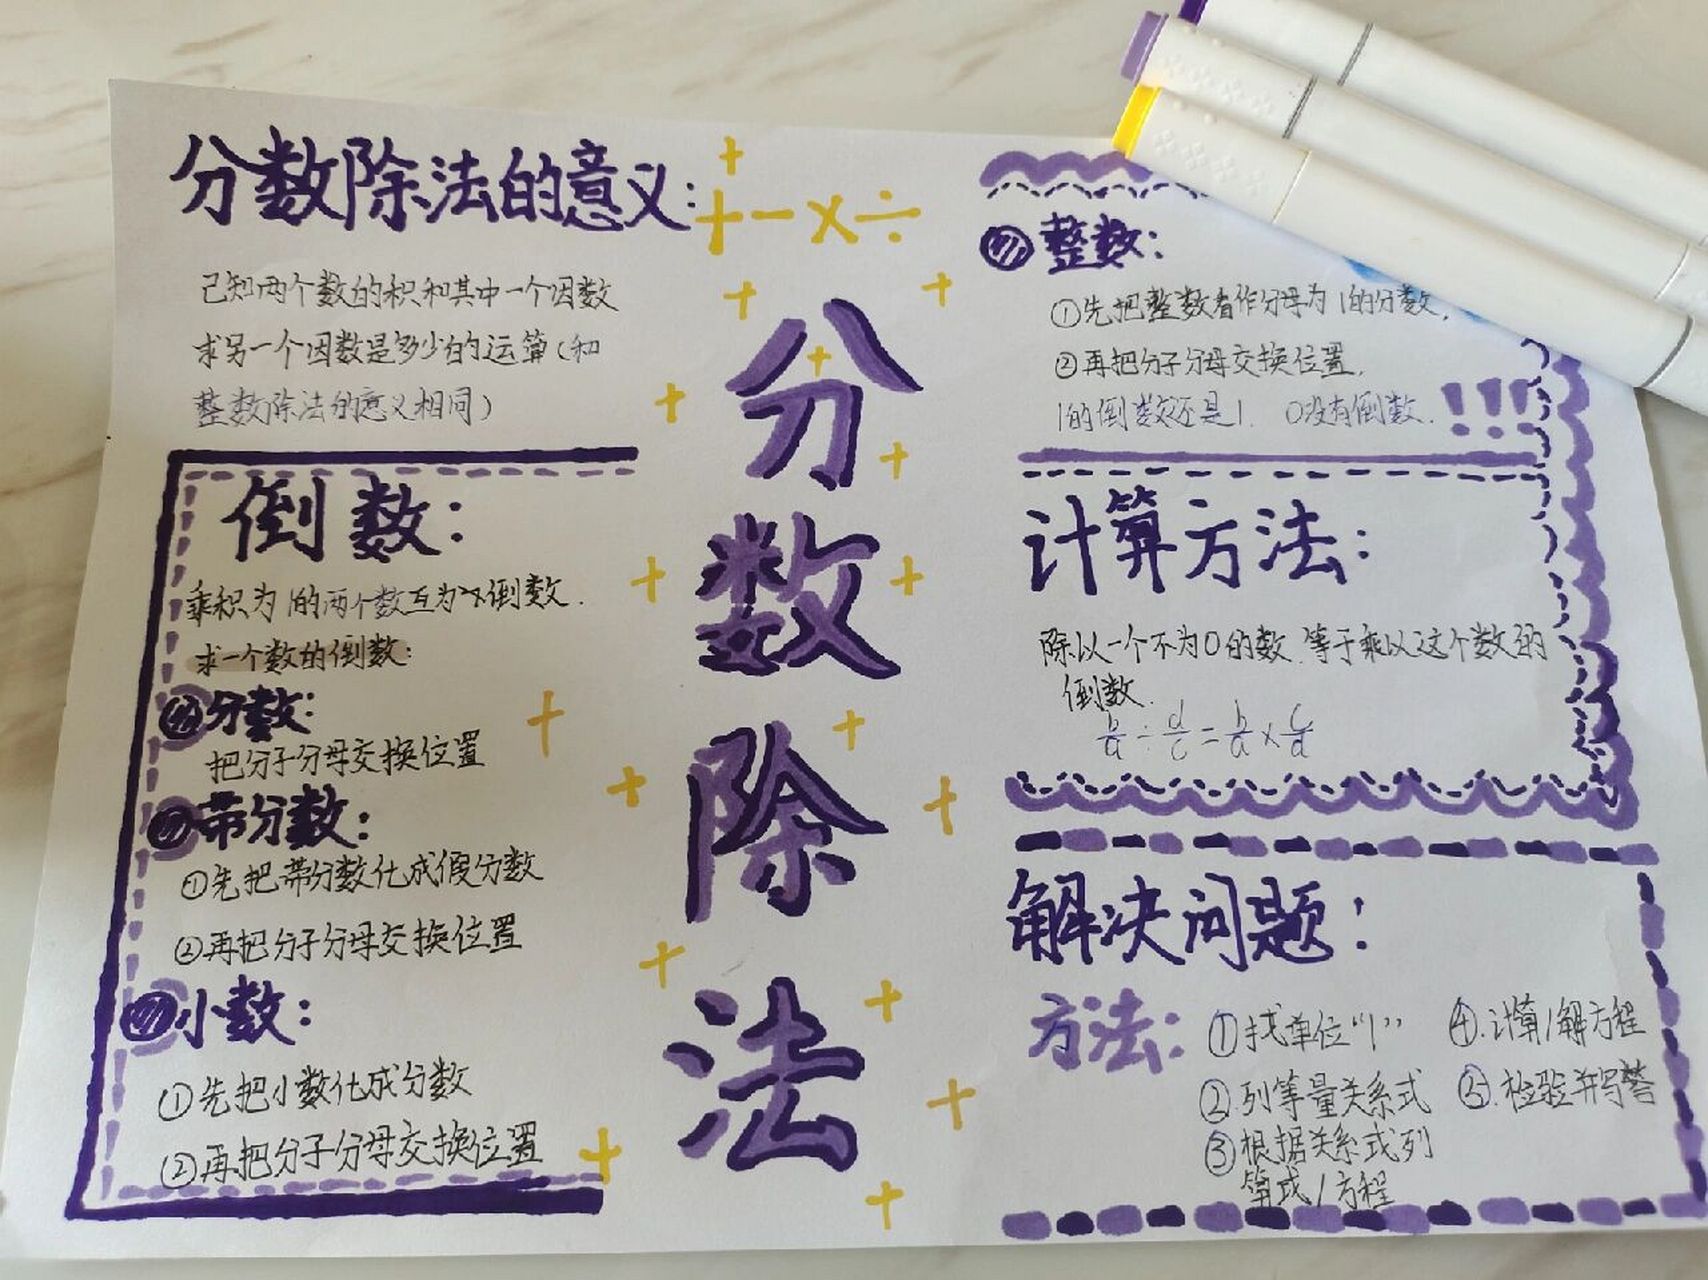 分数除法的意义:
+-×÷
已知两个数的积和其中一个因数
求另一个因数是多少的运算(和
整数除法的意义相同)
倒数:
乘积为1的两个数互为倒数.
求一个数的倒数:
分数:
把分子分母交换位置
带分数:
①先把带分数化成假分数
②再把分子分母交换位置
小数:
①先把小数化成分数
②再把分子分母交换位置
分
数
除
法
整数:
①先把整数看作分母为1的分数,
②再把分子分母交换位置.
1的倒数还是1. 0没有倒数. !!!
计算方法:
除以一个不为0的数.等于乘以这个数的
倒数.
b/a÷d/c=b/a×c/d
解决问题!
方法:
①找单位“1”
②.列等量关系式
③根据关系式列
算式/方程
④.计算/解方程
⑤.检验并写答